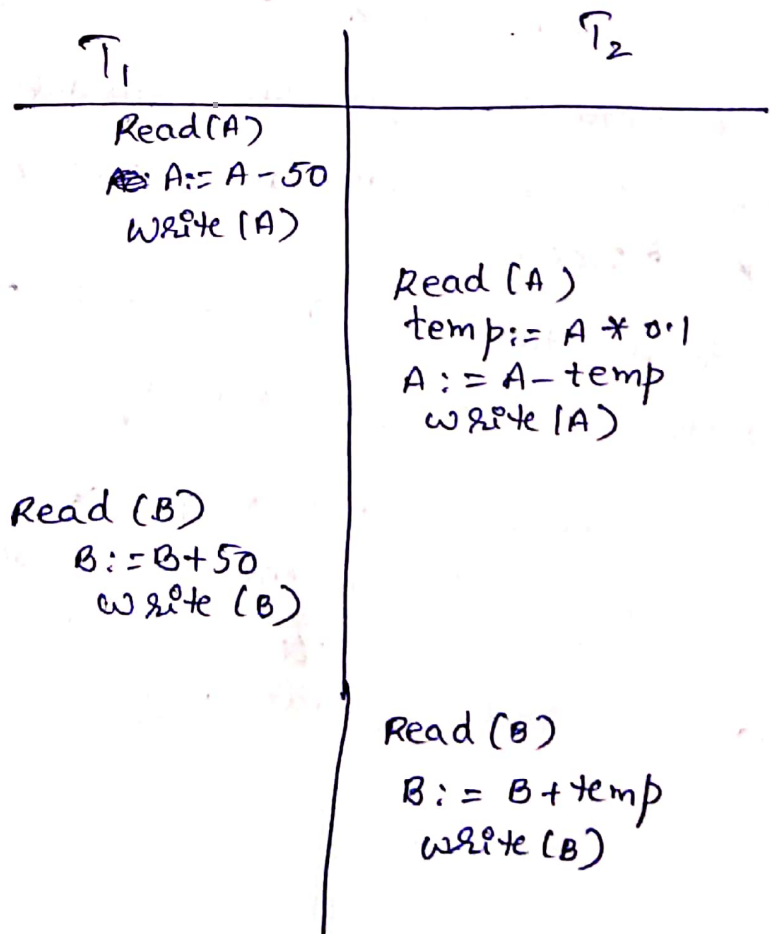 T1
T2
Read(A)
A:= A-50
write (A)
Read (A)
temp:= A * 0.1
A := A- temp
write (A)
Read (B)
B:=B+50
write (B)
Read (B)
B:= B + temp
write (B)